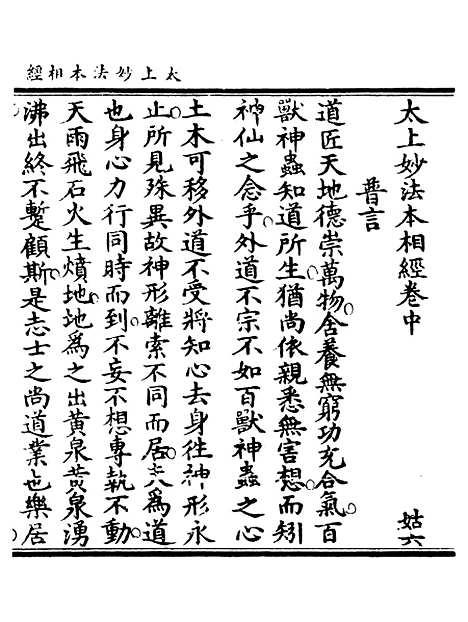 太上妙法本相經
太上妙法本相經卷中 姑六
普言
道匠天地德崇萬物含養無窮功充合氣百
獸神蟲知道所生猶尚依親悉無害想而矧
神仙之念乎外道不宗不如百獸神蟲之心
土木可移外道不受將知心去身往神形永
止所見殊異故神形離索不同而居夫為道
也身心力行同時而到不妄不想專執不動
天雨飛石火生熿地地為之出黃泉黃泉湧
沸出終不蹔顧斯是志士之尚道業也樂居